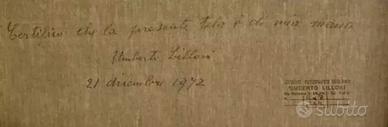 Certifico che la presente tela è di mia mano
Umberto Lilloni
21 dicembre 1972
UMBERTO LILLONI
subito